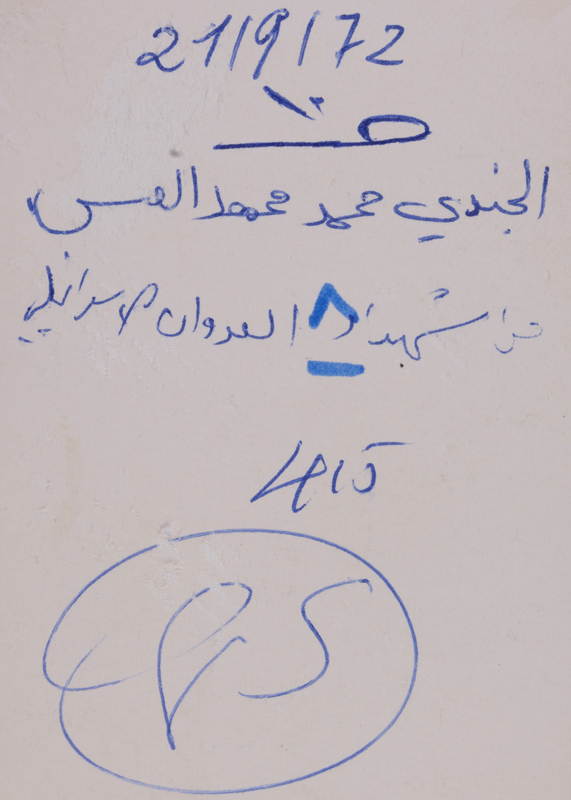 21/9/72
الجندي محمد محمد القس
من شهداء العدوان الاسرائيلي
٨
415
PS